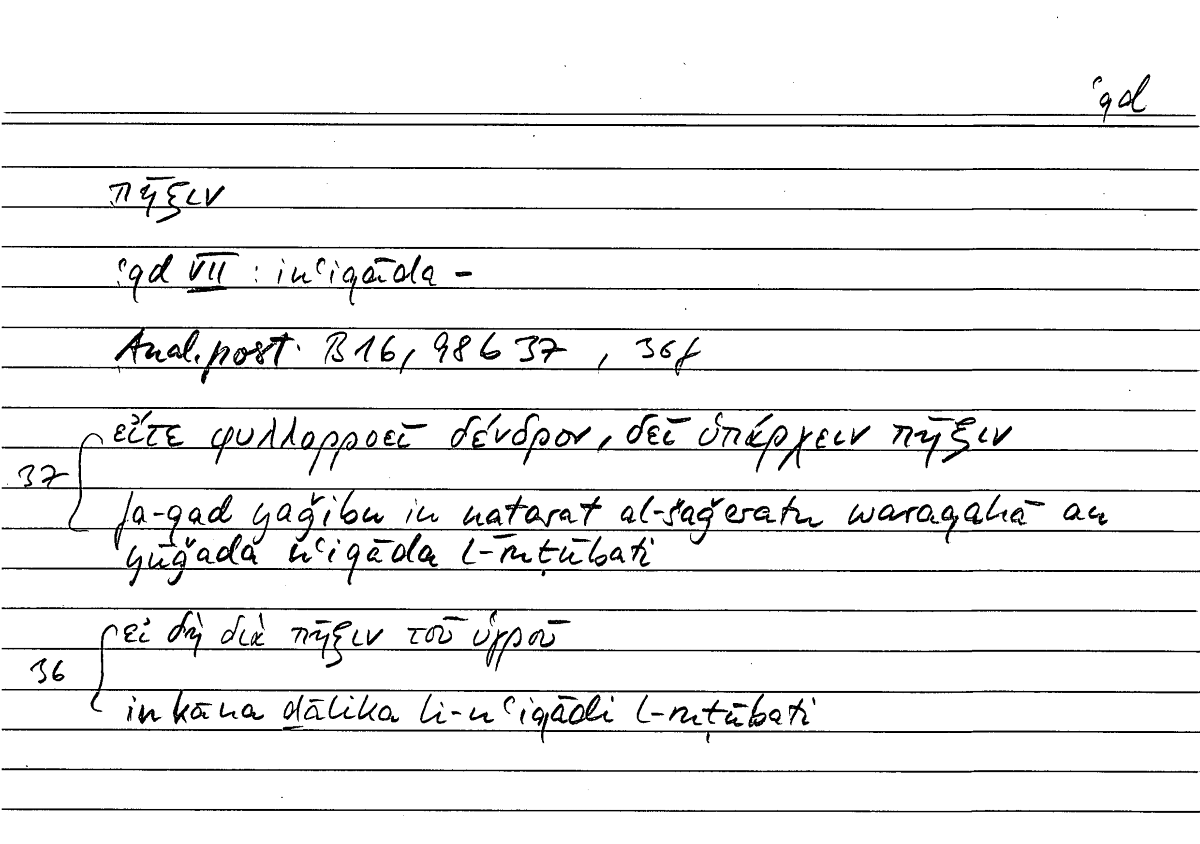 ʿqd
πῆξιν
ʿqd VII : inʿiqāda –
Anal. post. B 16, 98 b 37 , 36f
εἴτε φυλλορροεῖ δένδρον, δεῖ ὑπάρχειν πῆξιν
37
fa-qad yaǧibu in natarat al-šaǧeratu waraqahā an
yūǧada nʿiqāda l-ruṭūbati
εἰ δὴ διὰ πῆξιν τοῦ ὑγροῦ
36
in kāna ḏālika li-nʿiqādi l-ruṭūbati